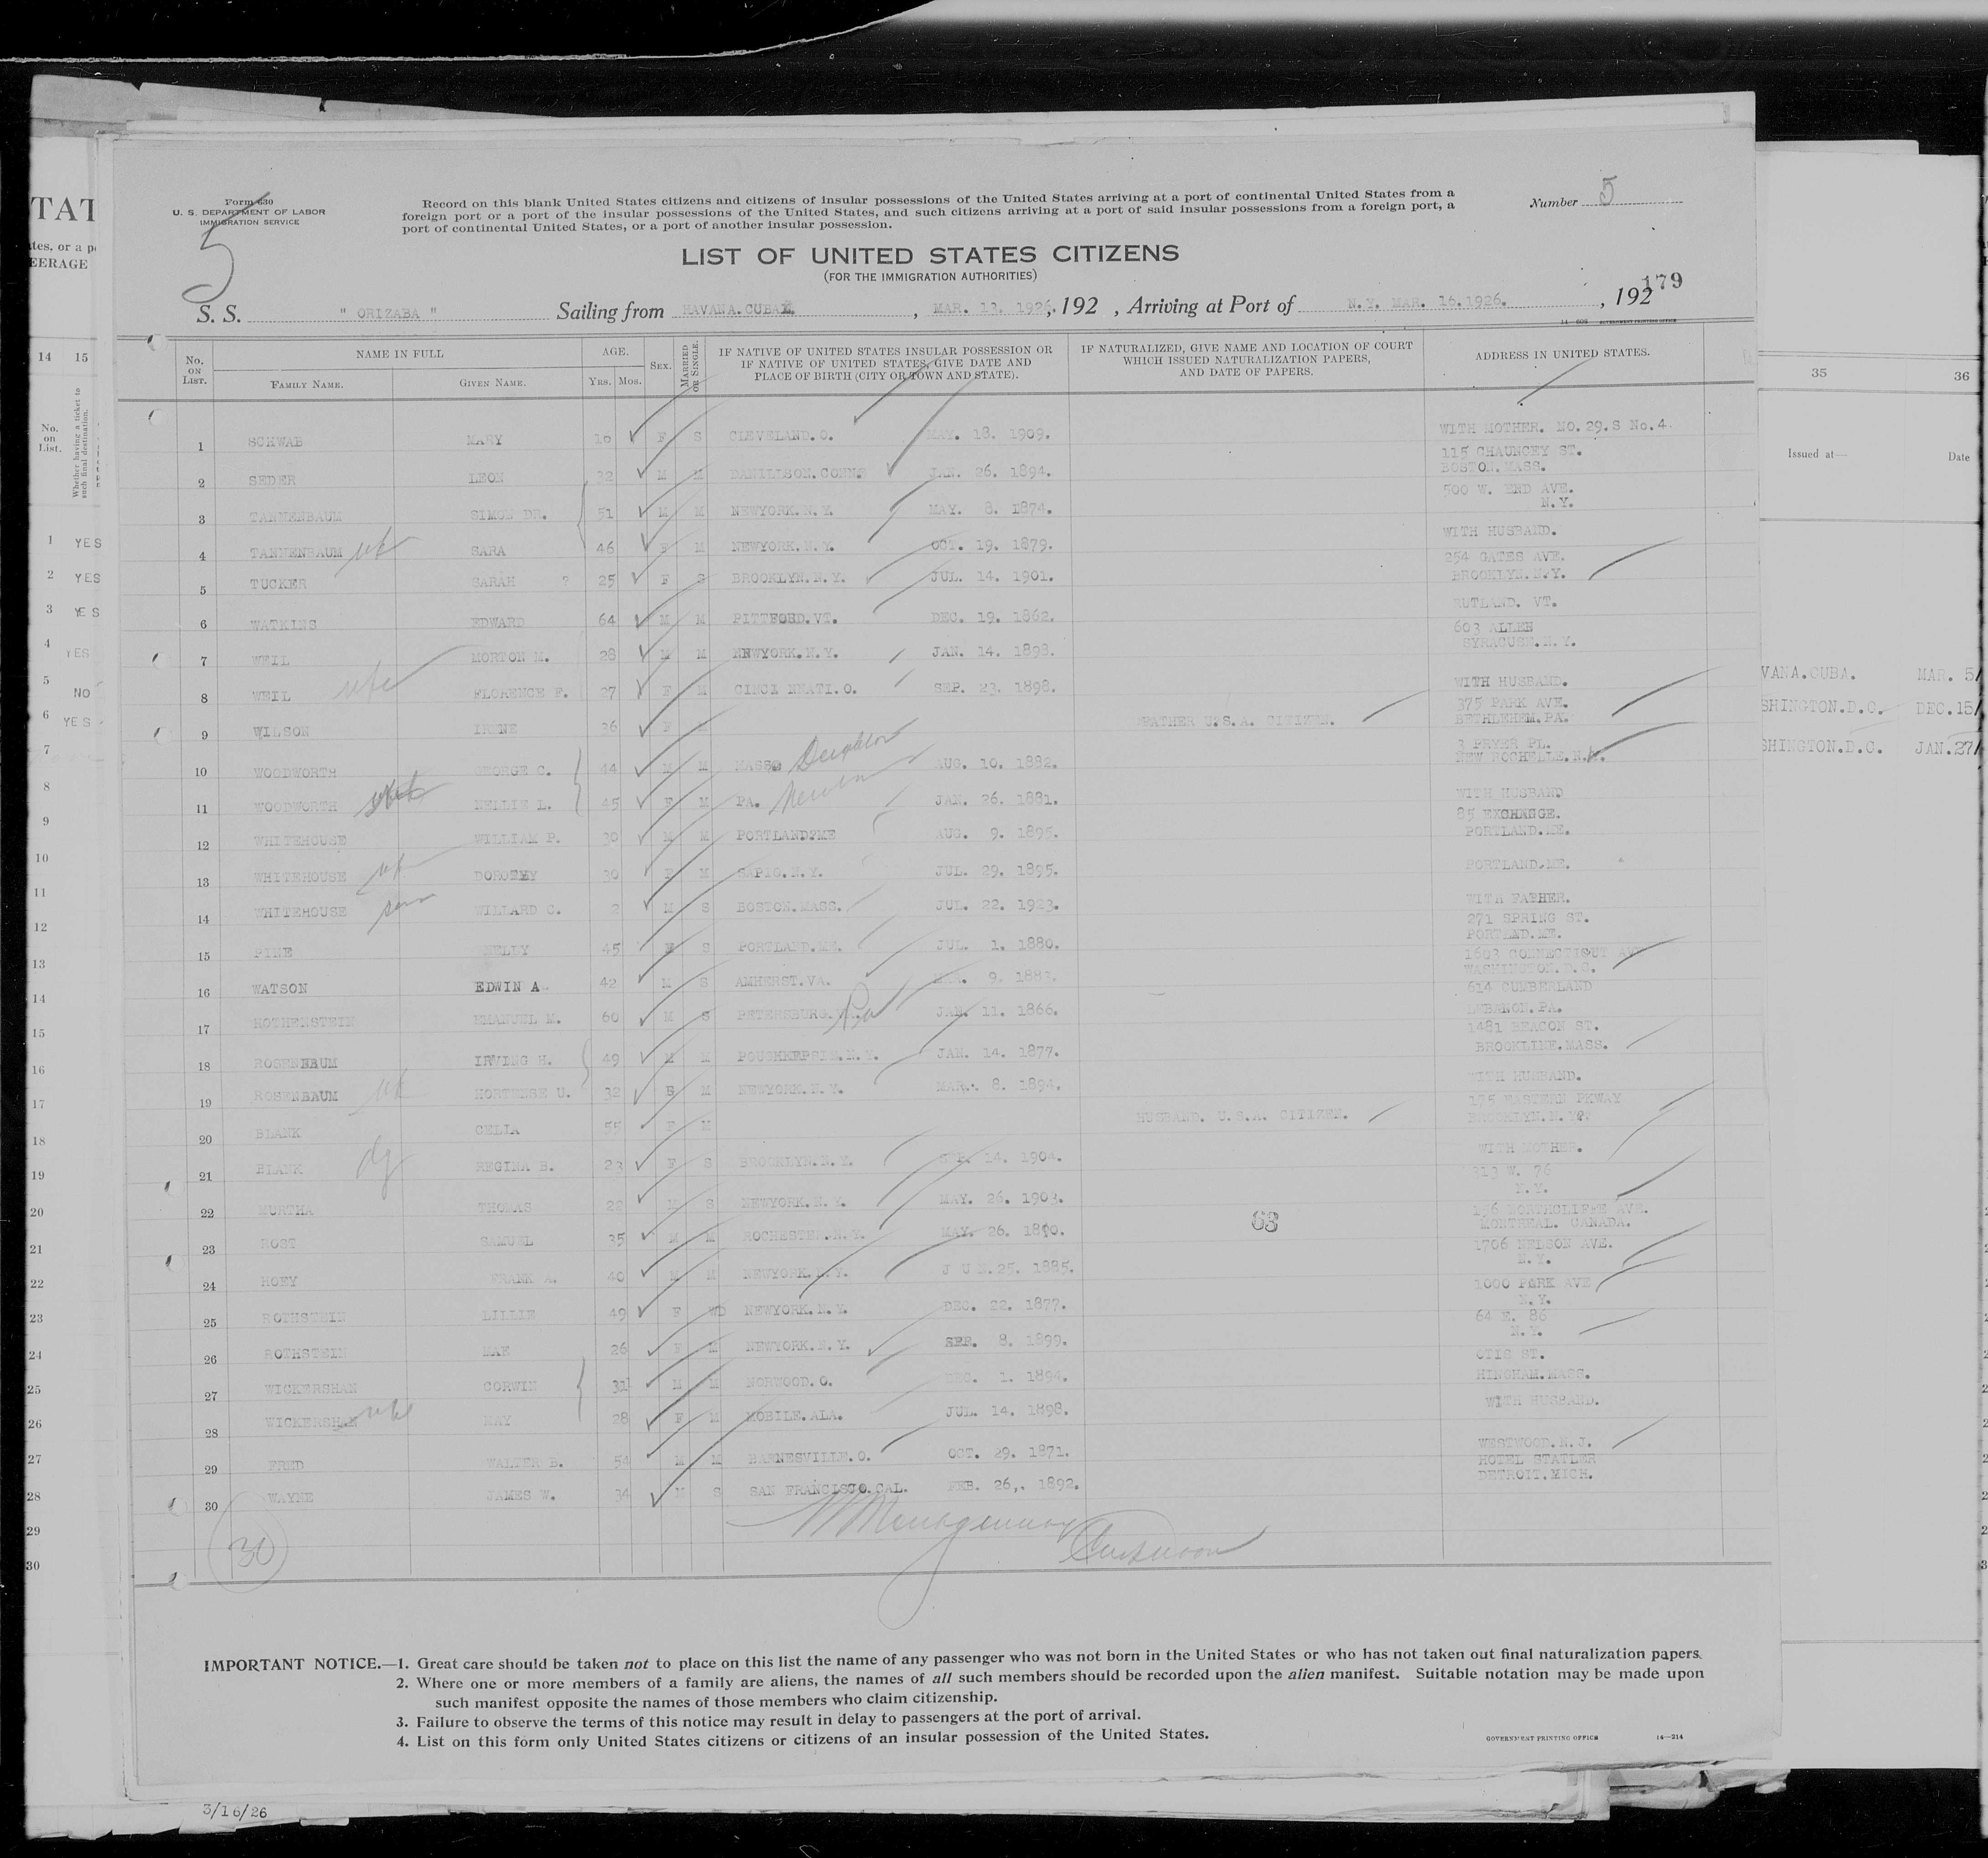 Form 630
U. S. DEPARTMENT OF LABOR
IMMIGRATION SERVICE
5
Record on this blank United States citizens and citizens of insular possessions of the United States arriving at a port of continental United States from a
foreign port or a port of the insular possessions of the United States, and such citizens arriving at a port of said insular possessions from a foreign port, a
port of continental United States, or a port of another insular possession.
Number 5
LIST OF UNITED STATES CITIZENS
(FOR THE IMMIGRATION AUTHORITIES)
179
S. S. " ORIZABA " Sailing from HAVANA.CUBA , MAR. 13. 1926, 192 , Arriving at Port of N.Y. MAR. 16.1926. , 192
No. ON LIST. NAME IN FULL AGE. SEX. MARRIED OR SINGLE. IF NATIVE OF UNITED STATES INSULAR POSSESSION OR IF NATIVE OF UNITED STATES, GIVE DATE AND PLACE OF BIRTH (CITY OR TOWN AND STATE). IF NATURALIZED, GIVE NAME AND LOCATION OF COURT WHICH ISSUED NATURALIZATION PAPERS, AND DATE OF PAPERS. ADDRESS IN UNITED STATES.
FAMILY NAME. GIVEN NAME. YRS. MOS.
1 SCHWAB MARY 16 F S CLEVELAND.O. MAY. 18. 1909. WITH MOTHER. NO.29.S No.4.
2 SEDER LEON 32 M M DANILISON.CONN. JAN. 26. 1894. 115 CHAUNCEY ST. BOSTON.MASS.
3 TANNENBAUM SIMON DR. 51 M M NEWYORK.N.Y. MAY. 8. 1874. 500 W. END AVE. N.Y.
4 TANNENBAUM SARA 46 F M NEWYORK.N.Y. OCT. 19. 1879. WITH HUSBAND.
5 TUCKER SARAH ? 25 F S BROOKLYN.N.Y. JUL. 14. 1901. 254 GATES AVE. BROOKLYN.N.Y.
6 WATKINS EDWARD 64 M M PITTFORD.VT. DEC. 19. 1862. RUTLAND. VT.
7 WEIL MORTON M. 28 M M NEWYORK.N.Y. JAN. 14. 1898. 603 ALLEN SYRACUSE.N.Y.
8 WEIL FLORENCE F. 27 F M CINCI NNATI.O. SEP. 23. 1898. WITH HUSBAND.
9 WILSON IRENE 36 F FATHER U.S.A. CITIZEN. 375 PARK AVE. BETHLEHEM.PA.
10 WOODWORTH GEORGE C. 44 M M MASS. AUG. 10. 1882. 3 PRYER PL. NEW ROCHELLE.N.Y.
11 WOODWORTH NELLIE L. 45 F M PA. JAN. 26. 1881. WITH HUSBAND
12 WHITEHOUSE WILLIAM P. 30 M M PORTLAND?ME AUG. 9. 1895. 85 EXCHANGE. PORTLAND.ME.
13 WHITEHOUSE DOROTHY 30 F M SAPIO.N.Y. JUL. 29. 1895. PORTLAND.ME.
14 WHITEHOUSE son WILLARD C. 2 M S BOSTON.MASS. JUL. 22. 1923. WITH FATHER.
15 PINE NELLY 45 F S PORTLAND.ME. JUL. 1. 1880. 271 SPRING ST. PORTLAND.ME.
16 WATSON EDWIN A 42 M S AMHERST.VA. MAR. 9. 1883. 1603 CONNECTICUT AVE WASHINGTON.D.C.
17 ROTHENSTEIN EMANUEL M. 60 M S PETERSBURG. Pa JAN. 11. 1866. 614 CUMBERLAND LEBENON.PA.
18 ROSENBAUM IRVING H. 49 M M POUGHKEPSIE.N.Y. JAN. 14. 1877. 1481 BEACON ST. BROOKLINE.MASS.
19 ROSENBAUM HORTENSE U. 32 F M NEWYORK.N.Y. MAR. 8. 1894. WITH HUSBAND.
20 BLANK CELIA 55 F M HUSBAND. U.S.A. CITIZEN. 175 EASTERN PKWAY BROOKLYN.N.Y.
21 BLANK REGINA B. 23 F S BROOKLYN.N.Y. SEP. 14. 1904. WITH MOTHER.
22 MURTHA THOMAS 22 M S NEWYORK.N.Y. MAY. 26. 1903. 313 W. 76 N.Y.
23 ROST SAMUEL 35 M M ROCHESTER.N.Y. MAY. 26. 1890. 156 NORTHCLIFFE AVE. MONTREAL. CANADA.
63
24 HOEY FRANK A. 40 M M NEWYORK.N.Y. J U N.25. 1885. 1706 NELSON AVE. N.Y.
25 ROTHSTEIN LILLIE 49 F WD NEWYORK.N.Y. DEC. 22. 1877. 1000 PARK AVE N.Y.
26 ROTHSTEIN MAE 26 F M NEWYORK.N.Y. SEP. 8. 1899. 64 E. 86 N.Y.
27 WICKERSHAN CORWIN 31 M M NORWOOD.O. DEC. 1. 1894. OTIS ST. HINGHAM.MASS.
28 WICKERSHAN MAY 28 F M MOBILE.ALA. JUL. 14. 1898. WITH HUSBAND.
29 FRED WALTER B. 54 M M BARNESVILLE.O. OCT. 29. 1871. WESTWOOD.N.J.
30 WAYNE JAMES W. 34 M S SAN FRANCISCO.CAL. FEB. 26,. 1892. HOTEL STATLER DETROIT.MICH.
30
IMPORTANT NOTICE.—1. Great care should be taken not to place on this list the name of any passenger who was not born in the United States or who has not taken out final naturalization papers.
2. Where one or more members of a family are aliens, the names of all such members should be recorded upon the alien manifest. Suitable notation may be made upon
such manifest opposite the names of those members who claim citizenship.
3. Failure to observe the terms of this notice may result in delay to passengers at the port of arrival.
4. List on this form only United States citizens or citizens of an insular possession of the United States.
GOVERNMENT PRINTING OFFICE 14—214
3/16/26
TAT
tes, or a p
EERAGE
14 15
No. on List.
Whether having a ticket to such final destination.
1 YES
2 YES
3 YES
4 YES
5 NO
6 YES
7
8
9
10
11
12
13
14
15
16
17
18
19
20
21
22
23
24
25
26
27
28
29
30
35 36
Issued at— Date
VANA.CUBA. MAR. 5/
SHINGTON.D.C. DEC.15/
SHINGTON.D.C. JAN.27/